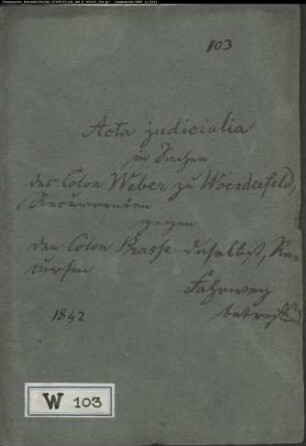 103
Acta judicialia
in Sachen
des Colon Weber zu Woerderfeld,
Recurrenten
gegen
den Colon Krasse daselbst, Re-
cursen
Fahrweg
betreffend
1842
W 103